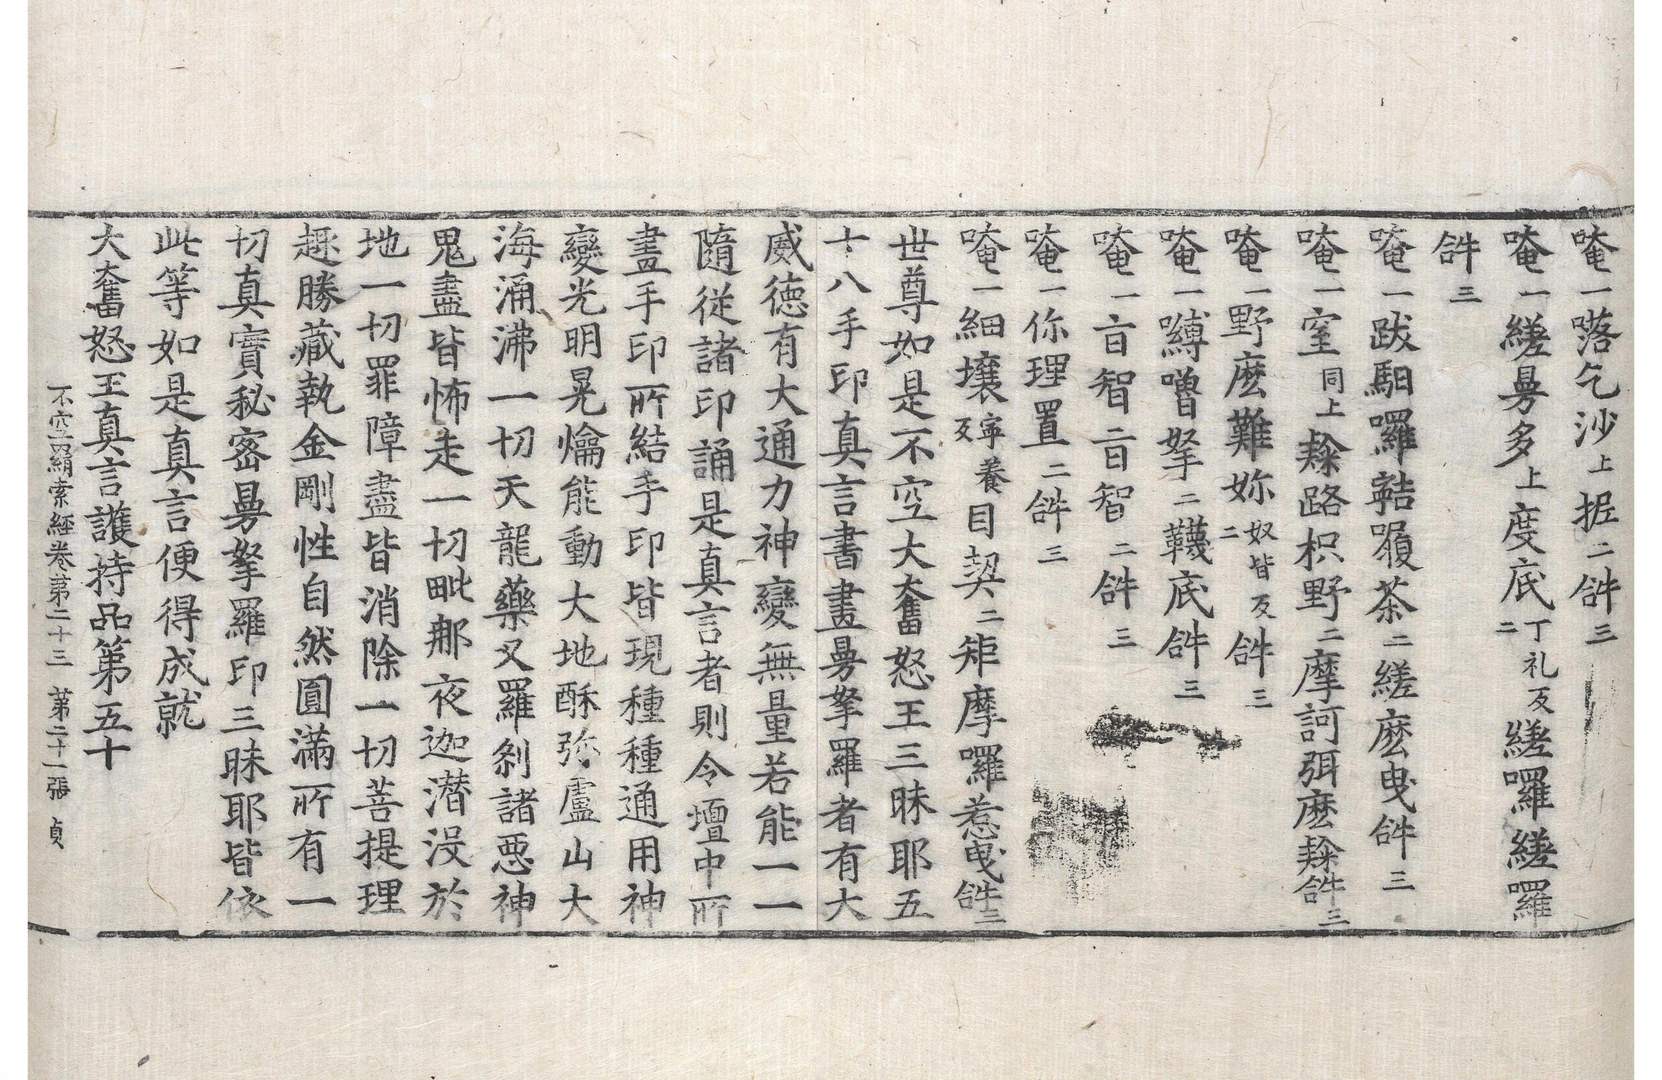 唵一嚕乞沙上抳二𤙖三
唵一縒曼多上度底丁礼反二縒囉縒囉
𤙖三
唵一跋馹囉囉茶二縒麽曳𤙖三
唵一室同上路枳野二摩訶弭麽𤙖三
唵一野麽難妳奴皆反二𤙖三
唵一嚩嚕拏二韈底𤙖三
唵一亩智亩智二𤙖三
唵一你理置二𤙖三
唵一細壤寧養反目契二矩摩囉惹曳𤙖三
世尊如是不空大奮怒王三昧耶五
十八手印真言書畫曼拏羅者有大
威德有大通力神變無量若能一一
隨從諸印誦是真言者則令壇中所
畫手印所結手印皆現種種通用神
變光明晃爚能動大地酥弥盧山大
海涌沸一切天龍藥叉羅剎諸惡神
鬼盡皆怖走一切毗那夜迦潛沒於
地一切罪障盡皆消除一切菩提理
趣勝藏執金剛性自然圓滿所有一
切真實秘密曼拏羅印三昧耶皆依
此等如是真言便得成就
大奮怒王真言護持品第五十
不空羂索經卷第二十三　第二十一張　貞